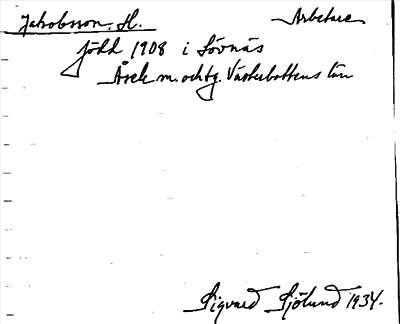 Jakobsson, H. Arbetare
född 1908 i Lövnäs
Åsele m. och tg. Västerbottens län
Sigvard Sjölund 1934.